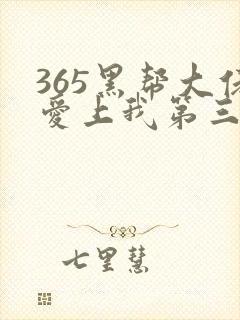 365黑帮大佬
爱上我第三
七里慧